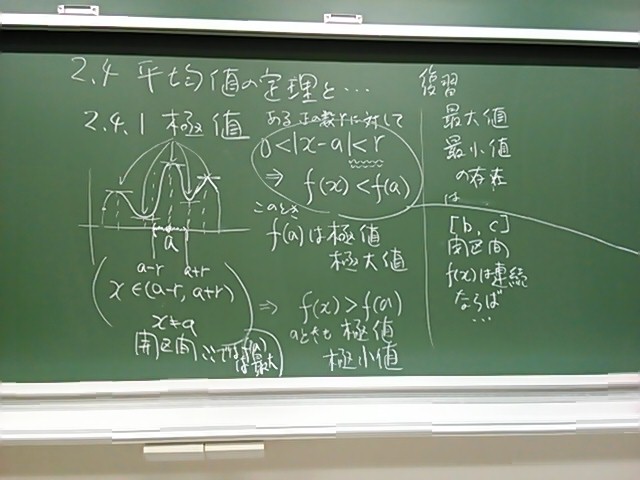 2.4 平均値の定理と…
2.4.1 極値
ある正の数rに対して
0<|x-a|<r
⇒ f(x)<f(a)
このとき
f(a)は極値
極大値
a
a-r a+r
x∈(a-r, a+r)
x≠a
開区間
ここではf(a)
は最大
⇒ f(x)>f(a)
のときも 極値
極小値
復習
最大値
最小値
の存在
は
[b, c]
閉区間
f(x)は連続
ならば
…